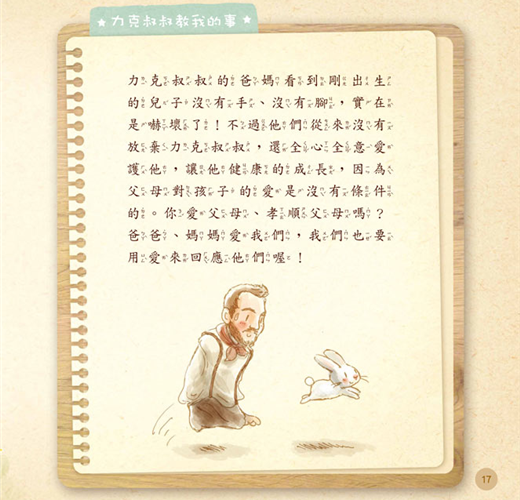 力克叔叔教我的事
力克叔叔的爸媽看到剛出生
的兒子沒有手、沒有腳，實在
是嚇壞了！不過他們從來沒有
放棄力克叔叔，還全心全意愛
護他，讓他健康的成長，因為
父母對孩子的愛是沒有條件
的。你愛父母、孝順父母嗎？
爸爸、媽媽愛我們，我們也要
用愛來回應他們喔！
17